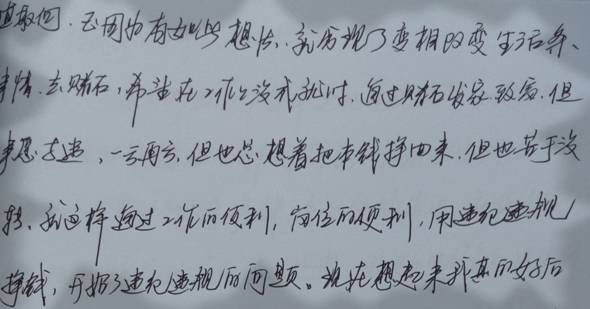 取向。正因为有如此想法,就出现了变相的变生活条、
事情。去赌石,希望在工作上没戏唱时,通过赌石发家致富。但
事愿去违,一云再云,但也总想着把本钱挣回来,但也苦于没
转、就这样通过工作的便利,岗位的便利,用违纪违规
挣钱,开始了违纪违规的问题。现在想起来我真的好后